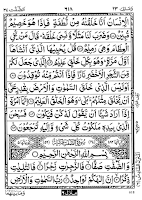 ٢٣ ٦١٨
الْإِنْسَانُ أَنَّا خَلَقْنٰهُ مِنْ نُّطْفَةٍ فَإِذَا هُوَ خَصِيمٌ
مُّبِينٌ وَضَرَبَ لَنَا مَثَلًا وَّنَسِيَ خَلْقَهُ قَالَ مَنْ يُّحْيِ
الْعِظَامَ وَهِيَ رَمِيمٌ قُلْ يُحْيِيهَا الَّذِي أَنْشَأَهَا
أَوَّلَ مَرَّةٍ وَهُوَ بِكُلِّ خَلْقٍ عَلِيمٌ الَّذِي جَعَلَ لَكُمْ
مِّنَ الشَّجَرِ الْأَخْضَرِ نَارًا فَإِذَا أَنْتُمْ مِّنْهُ تُوقِدُونَ
أَوَلَيْسَ الَّذِي خَلَقَ السَّمٰوٰتِ وَالْأَرْضَ بِقٰدِرٍ عَلٰى
أَنْ يَّخْلُقَ مِثْلَهُمْ بَلٰى وَهُوَ الْخَلّٰقُ الْعَلِيمُ إِنَّمَا أَمْرُهُ إِذَا
أَرَادَ شَيْئًا أَنْ يَّقُولَ لَهُ كُنْ فَيَكُونُ فَسُبْحٰنَ
الَّذِي بِيَدِهِ مَلَكُوتُ كُلِّ شَيْءٍ وَّإِلَيْهِ تُرْجَعُونَ
بِسْمِ اللهِ الرَّحْمٰنِ الرَّحِيمِ
وَالصّٰفّٰتِ صَفًّا فَالزّٰجِرٰتِ زَجْرًا فَالتّٰلِيٰتِ ذِكْرًا